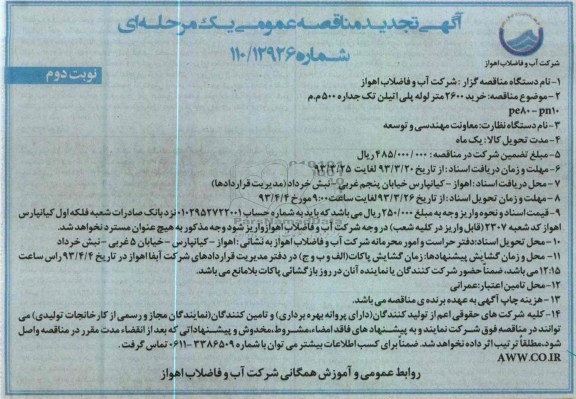 آگهی تجدید مناقصه عمومی یک مرحله‌ای
شماره ۱۱۰/۱۲۹۲۶
شرکت آب و فاضلاب اهواز
نوبت دوم
۱- نام دستگاه مناقصه گزار : شرکت آب و فاضلاب اهواز
۲- موضوع مناقصه: خرید ۲۶۰۰ متر لوله پلی اتیلن تک جداره ۵۰۰ م.م
pe۸۰ - pn۱۰
۳- نام دستگاه نظارت: معاونت مهندسی و توسعه
۴- مدت تحویل کالا: یک ماه
۵- مبلغ تضمین شرکت در مناقصه: ۴۸۵/۰۰۰/۰۰۰ ریال
۶- مهلت و زمان دریافت اسناد: از تاریخ ۹۳/۳/۲۰ لغایت ۹۳/۳/۲۵
۷- محل دریافت اسناد: اهواز - کیانپارس خیابان پنجم غربی - نبش خرداد (مدیریت قراردادها)
۸- مهلت و زمان تحویل اسناد: از تاریخ ۹۳/۳/۲۶ لغایت ساعت ۹:۰۰ مورخ ۹۳/۴/۴
۹- قیمت اسناد و نحوه واریز وجه به مبلغ ۲۵۰/۰۰۰ ریال می باشد که باید به شماره حساب ۰۱۰۲۹۵۲۷۲۲۰۰۱ نزد بانک صادرات شعبه فلکه اول کیانپارس
اهواز کد شعبه ۲۳۰۷ (قابل واریز در کلیه شعب) در وجه شرکت آب و فاضلاب اهواز واریز شود وجه مذکور به هیچ عنوان مسترد نخواهد شد.
۱۰- محل تحویل اسناد: دفتر حراست و امور محرمانه شرکت آب و فاضلاب اهواز به نشانی: اهواز - کیانپارس - خیابان ۵ غربی - نبش خرداد
۱۱- محل و زمان گشایش پیشنهادها: زمان گشایش پاکات (الف و ب و ج) در دفتر مدیریت قراردادهای شرکت آبفا اهواز در تاریخ ۹۳/۴/۴ راس ساعت
۱۲:۱۵ می باشد، ضمناً حضور شرکت کنندگان یا نماینده آنان در روز بازگشائی پاکات بلامانع می باشد.
۱۲- محل تامین اعتبار: عمرانی
۱۳- هزینه چاپ آگهی به عهده برنده ی مناقصه می باشد.
۱۴- کلیه شرکت های حقوقی اعم از تولید کنندگان (دارای پروانه بهره برداری) و تامین کنندگان (نمایندگان مجاز و رسمی از کارخانجات تولیدی) می
توانند در مناقصه فوق شرکت نمایند و به پیشنهاد های فاقد امضاء، مشروط، مخدوش و پیشنهاداتی که بعد از انقضاء مدت مقرر در مناقصه واصل
شود، مطلقاً ترتیب اثر داده نخواهد شد. ضمناً برای کسب اطلاعات بیشتر می توان با شماره ۳۳۸۶۵۰۹-۰۶۱۱ تماس گرفت.
AWW.CO.IR
روابط عمومی و آموزش همگانی شرکت آب و فاضلاب اهواز